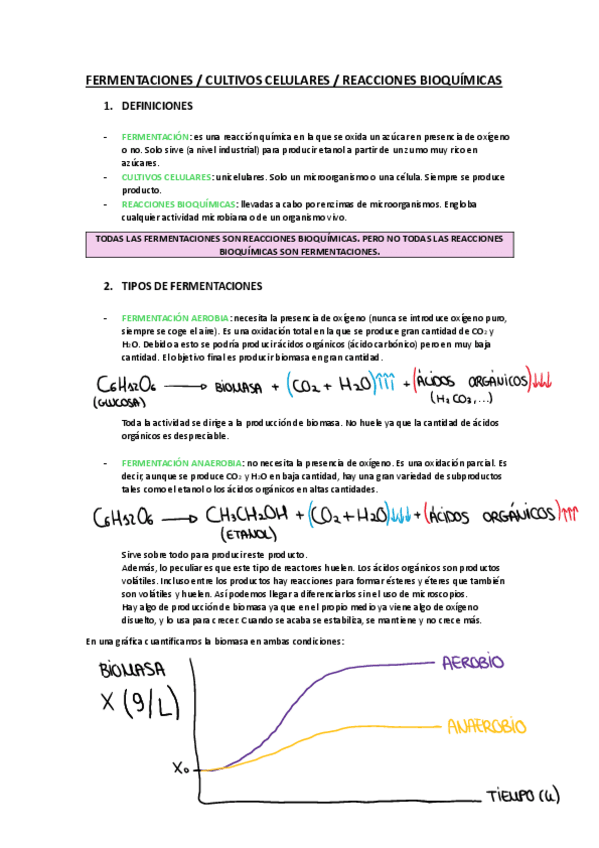 FERMENTACIONES / CULTIVOS CELULARES / REACCIONES BIOQUÍMICAS
1. DEFINICIONES
- FERMENTACIÓN: es una reacción química en la que se oxida un azúcar en presencia de oxígeno
o no. Solo sirve (a nivel industrial) para producir etanol a partir de un zumo muy rico en
azúcares.
- CULTIVOS CELULARES: unicelulares. Solo un microorganismo o una célula. Siempre se produce
producto.
- REACCIONES BIOQUÍMICAS: llevadas a cabo por enzimas de microorganismos. Engloba
cualquier actividad microbiana o de un organismo vivo.
TODAS LAS FERMENTACIONES SON REACCIONES BIOQUÍMICAS. PERO NO TODAS LAS REACCIONES
BIOQUÍMICAS SON FERMENTACIONES.
2. TIPOS DE FERMENTACIONES
- FERMENTACIÓN AEROBIA: necesita la presencia de oxígeno (nunca se introduce oxígeno puro,
siempre se coge el aire). Es una oxidación total en la que se produce gran cantidad de CO₂ y
H₂O. Debido a esto se podría producir ácidos orgánicos (ácido carbónico) pero en muy baja
cantidad. El objetivo final es producir biomasa en gran cantidad.
C₆H₁₂O₆ → BIOMASA + (CO₂ + H₂O)↑↑↑ + (ÁCIDOS ORGÁNICOS)↓↓↓
(GLUCOSA) (H₂CO₃,...)
Toda la actividad se dirige a la producción de biomasa. No huele ya que la cantidad de ácidos
orgánicos es despreciable.
- FERMENTACIÓN ANAEROBIA: no necesita la presencia de oxígeno. Es una oxidación parcial. Es
decir, aunque se produce CO₂ y H₂O en baja cantidad, hay una gran variedad de subproductos
tales como el etanol o los ácidos orgánicos en altas cantidades.
C₆H₁₂O₆ → CH₃CH₂OH + (CO₂ + H₂O)↓↓↓ + (ÁCIDOS ORGÁNICOS)↑↑↑
(ETANOL)
Sirve sobre todo para producir este producto.
Además, lo peculiar es que este tipo de reactores huelen. Los ácidos orgánicos son productos
volátiles. Incluso entre los productos hay reacciones para formar ésteres y éteres que también
son volátiles y huelen. Así podemos llegar a diferenciarlos sin el uso de microscopios.
Hay algo de producción de biomasa ya que en el propio medio ya viene algo de oxígeno
disuelto, y lo usa para crecer. Cuando se acaba se estabiliza, se mantiene y no crece más.
En una gráfica cuantificamos la biomasa en ambas condiciones:
BIOMASA
X (g/L)
AEROBIO
ANAEROBIO
X₀
TIEMPO (h)